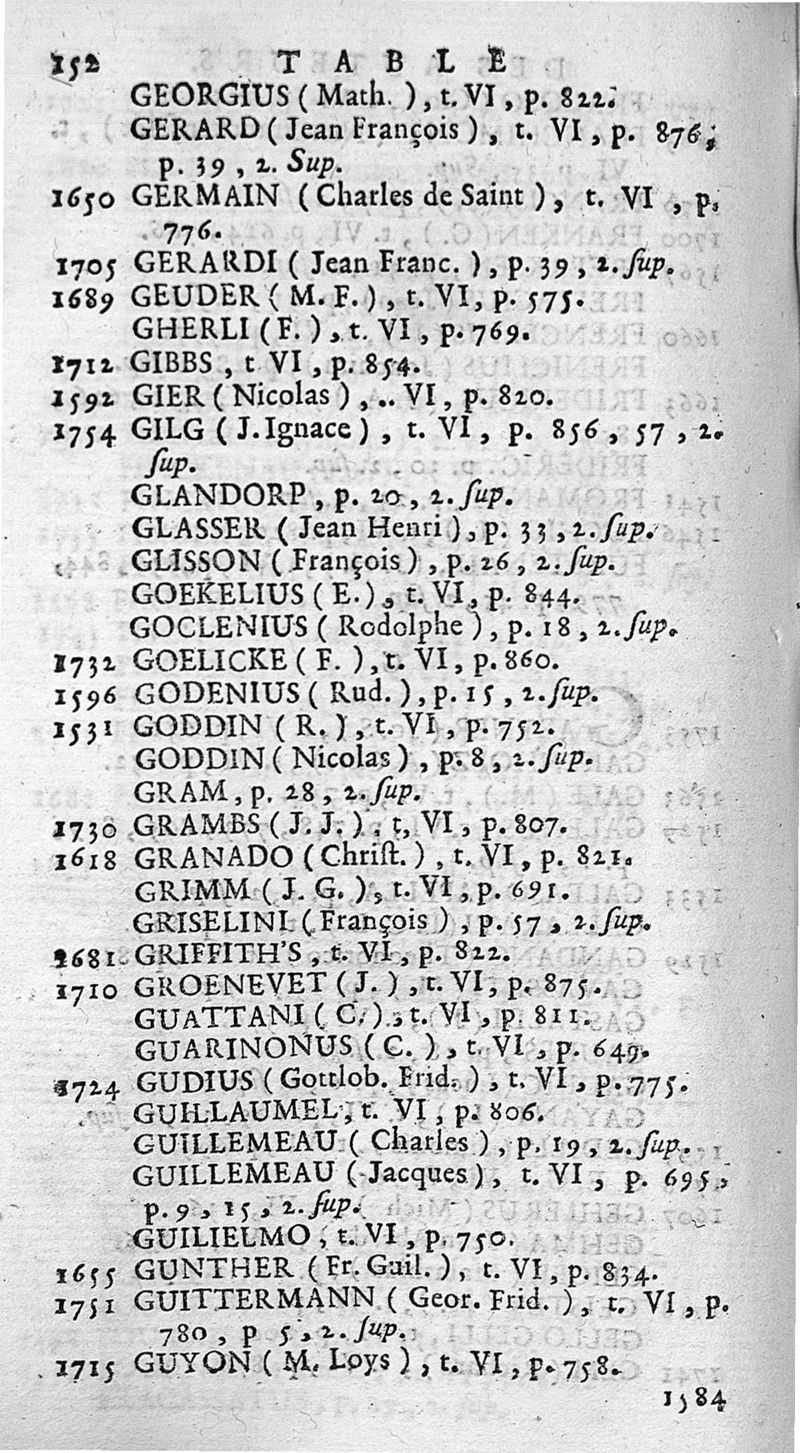 152 TABLE
GEORGIUS ( Math. ), t. VI, p. 822.
GERARD ( Jean François ), t. VI, p. 876,
p. 39, 2. Sup.
1650 GERMAIN ( Charles de Saint ), t. VI, p.
776.
1705 GERARDI ( Jean Franc. ), p. 39, 2. ſup.
1689 GEUDER ( M. F. ), t. VI, p. 575.
GHERLI ( F. ), t. VI, p. 769.
1712 GIBBS, t VI, p. 854.
1592 GIER ( Nicolas ), .. VI, p. 820.
1754 GILG ( J. Ignace ), t. VI, p. 856, 57, 2.
ſup.
GLANDORP, p. 20, 2. ſup.
GLASSER ( Jean Henri ), p. 33, 2. ſup.
GLISSON ( François ), p. 26, 2. ſup.
GOEKELIUS ( E. ), t. VI, p. 844.
GOCLENIUS ( Rodolphe ), p. 18, 2. ſup.
1732 GOELICKE ( F. ), t. VI, p. 860.
1596 GODENIUS ( Rud. ), p. 15, 2. ſup.
1531 GODDIN ( R. ), t. VI, p. 752.
GODDIN ( Nicolas ), p. 8, 2. ſup.
GRAM, p. 28, 2. ſup.
1730 GRAMBS ( J. J. ), t, VI, p. 807.
1618 GRANADO ( Chriſt. ), t. VI, p. 821.
GRIMM ( J. G. ), t. VI, p. 691.
GRISELINI ( François ), p. 57, 2. ſup.
1681 GRIFFITH'S, t. VI, p. 822.
1710 GROENEVET ( J. ), t. VI, p. 875.
GUATTANI ( C. ), t. VI, p. 811.
GUARINONUS ( C. ), t. VI, p. 649.
1724 GUDIUS ( Gottlob. Frid. ), t. VI, p. 775.
GUILLAUMEL, t. VI, p. 806.
GUILLEMEAU ( Charles ), p. 19, 2. ſup.
GUILLEMEAU ( Jacques ), t. VI, p. 695,
p. 9, 15, 2. ſup.
GUILIELMO, t. VI, p. 750.
1655 GUNTHER ( Fr. Guil. ), t. VI, p. 834.
1751 GUITTERMANN ( Geor. Frid. ), t. VI, p.
780, p 5, 2. ſup.
1715 GUYON ( M. Loys ), t. VI, p. 758.
1584